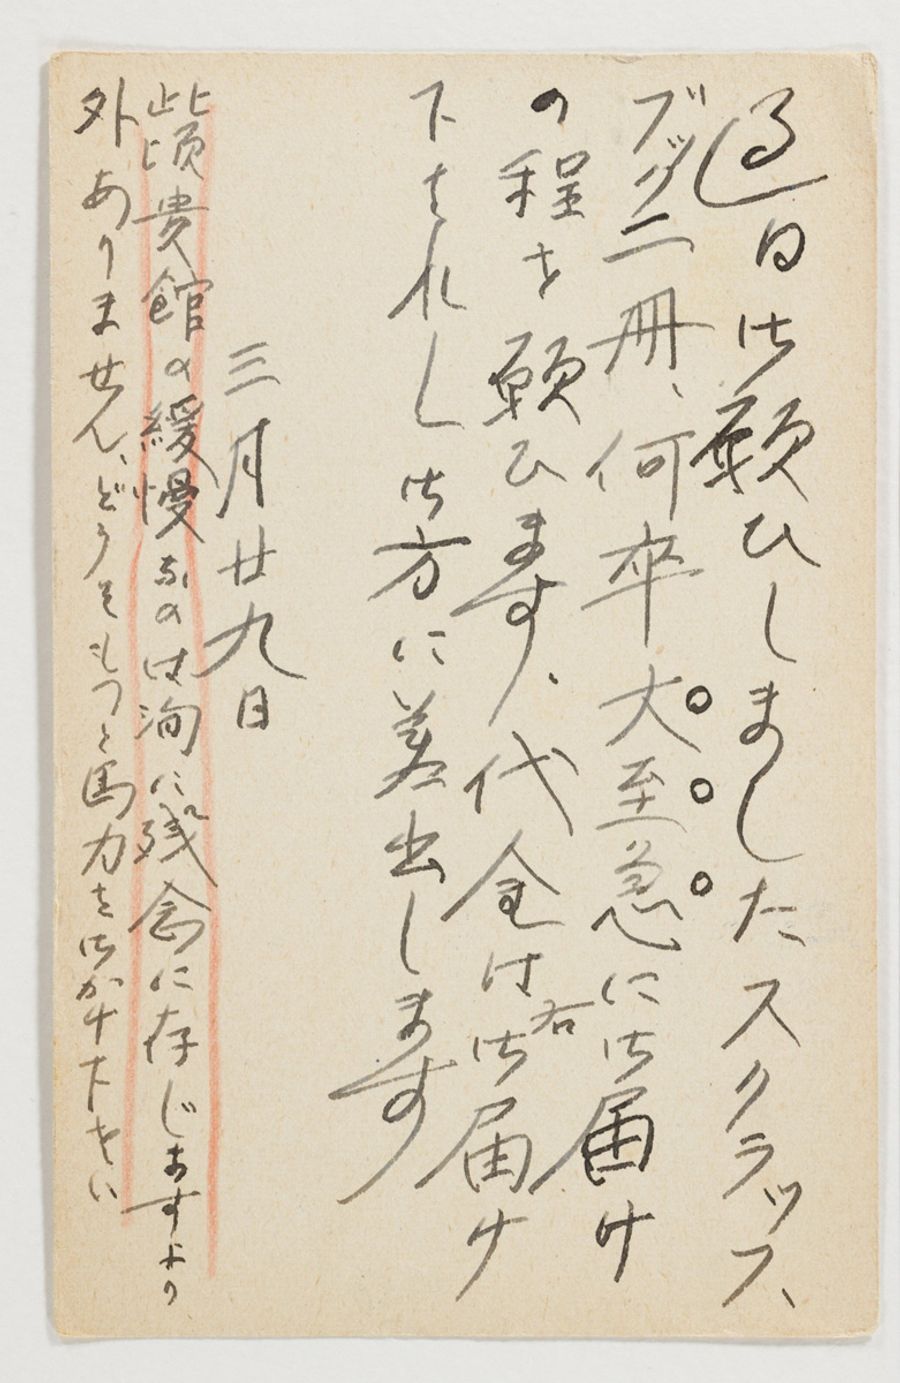 過日御願ひしましたスクラップ、
ブック二冊、何卒大至急に御届け
の程を願ひます、代金は右御届け
下されし御方に差出します
三月廿九日
此頃貴館の緩慢なのは洵に残念に存じますより
外ありません、どうぞもつと馬力を御かけ下さい